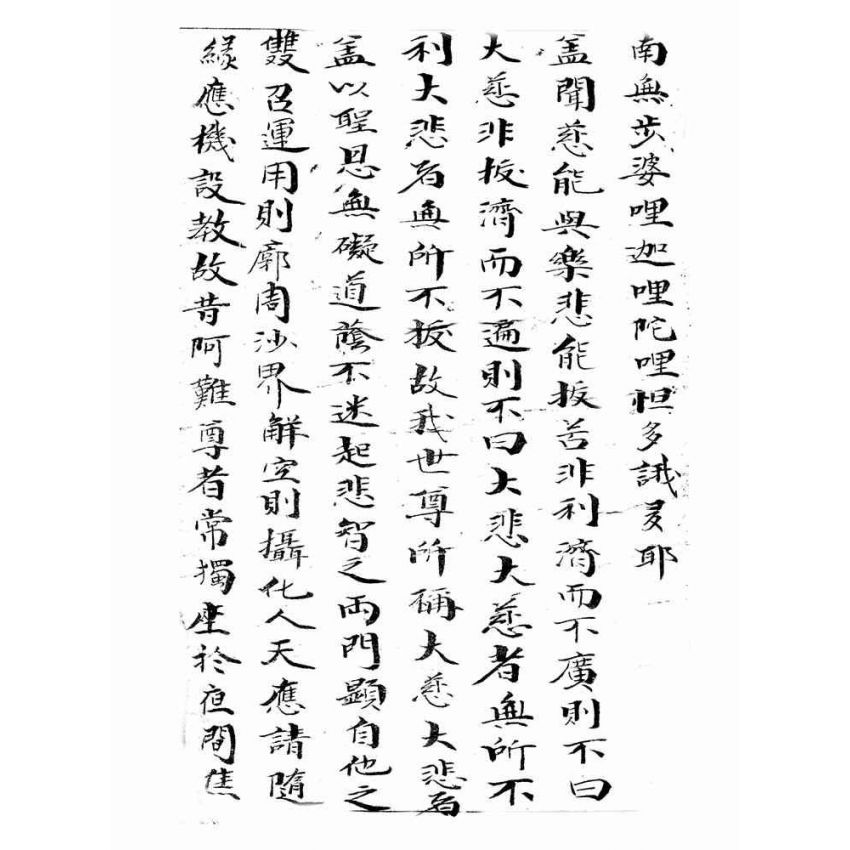 南無步婆哩迦哩陀哩怛多誐多耶
盖聞慈能與樂悲能扳苦非利濟而不廣則不曰
大慈非扳濟而不遍則不曰大悲大慈者無所不
利大悲者無所不扳故我世尊所稱大慈大悲者
盖以聖恩無礙道蔭不迷起悲智之両門顯自他之
雙召運用則廓周沙界解空則攝化人天應請隨
緣應機設教故昔阿難尊者常獨座於夜間焦